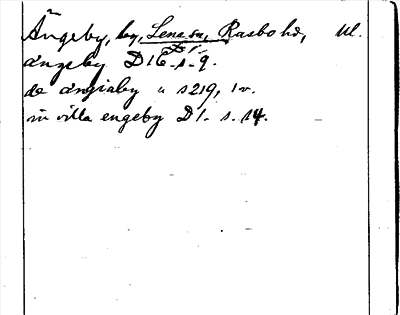 Ängeby, by, Lena sn, Rasbo hd, Ul.
D1.
ängeby D16 s. 9.
de ängiaby " s 219, 1 r.
in villa engeby D1. s. 14.